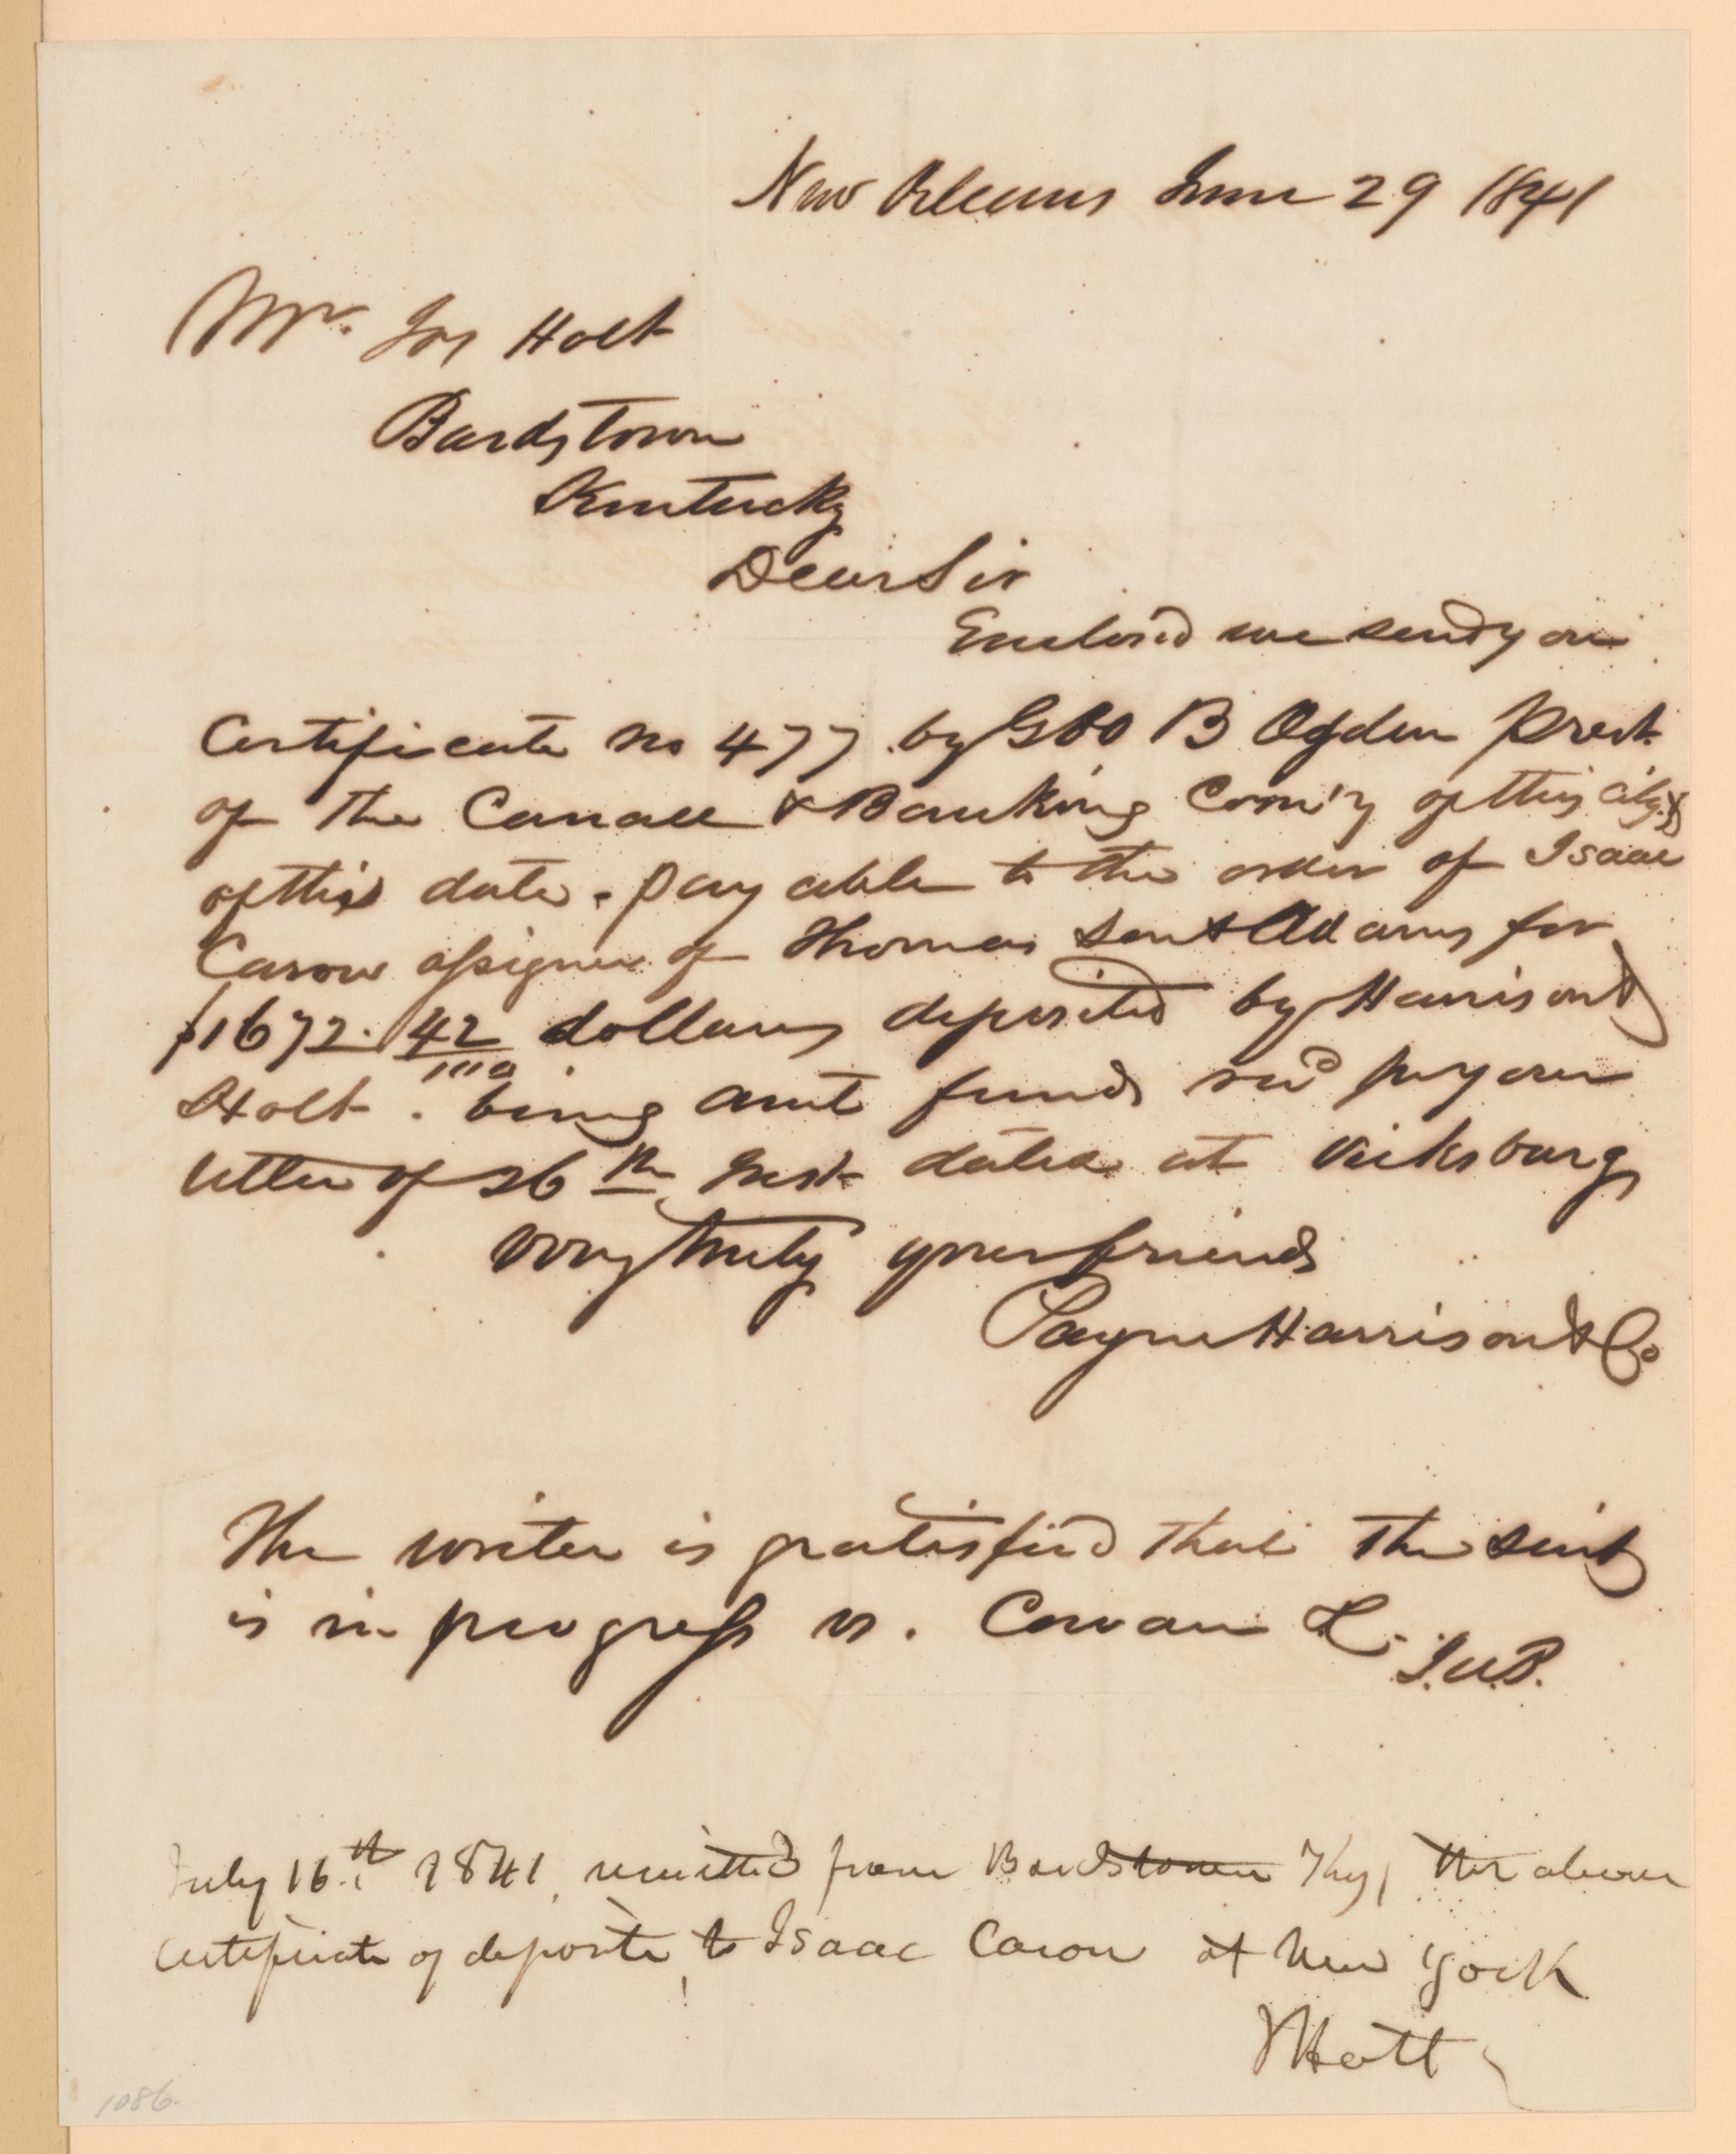 New Orleans June 29 1841
Mr. Jos Holt
Bardstown
Kentucky
Dear Sir
Enclosed we send you
Certificate no 477 by Geo B Ogden Prest.
of the Canall & Banking Com'y of this city &
of this date. payable to the order of Isaac
Carow assignee of Thomas Adams for
$1672. 42/100 dollars deposited by Harrison &
Holt. being amt funds recd pr your
letter of 26th Inst dated at Vicksburg
very truly your friends
Payne Harrison & Co
The writer is gratisfied that the suit
is in progress vs. Cowan &C.
J.U.P.
July 16.th 1841, remitted from Bardstown Ky, the above
certificate of deposite, to Isaac Carow at New York
J Holt
1086.